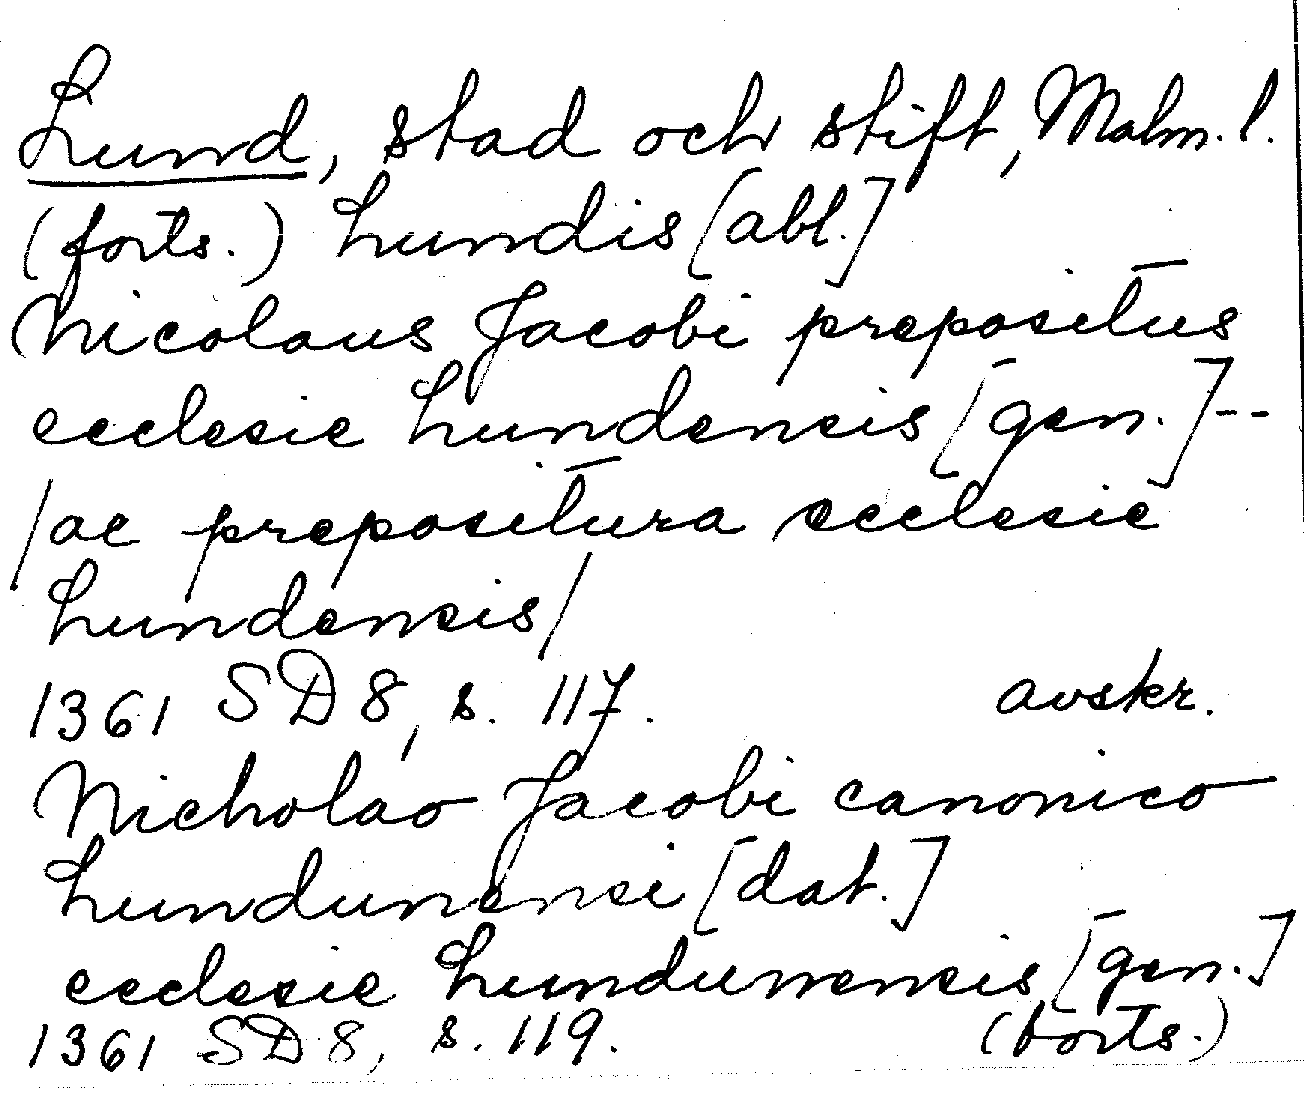 Lund, stad och stift, Malm. l.
(forts.) Lundis [abl.]
Nicolaus Jacobi prepositus
ecclesie Lundensis [gen.] --
/ac prepositura ecclesie
Lundensis/
1361 SD 8, s. 117. avskr.
Nicholao Jacobi canonico
Lundunensi [dat.]
ecclesie Lundunensis [gen.]
1361 SD 8, s. 119. (forts.)